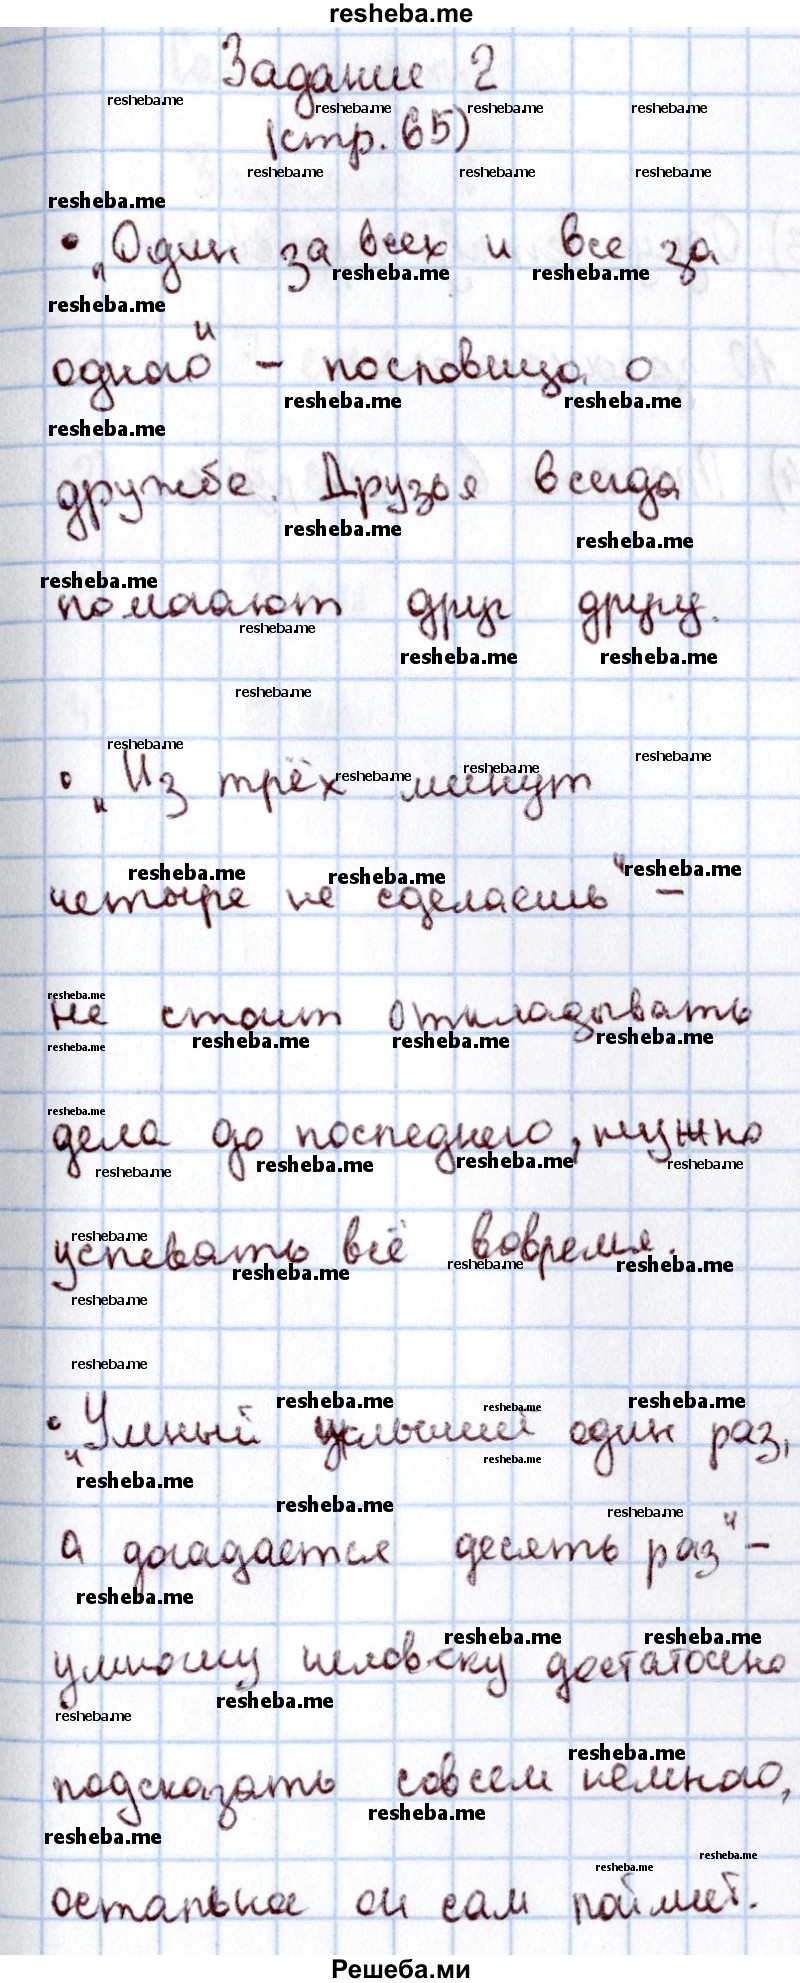 resheba.me
Задание 2
(стр. 65)
• „Один за всех и все за
одного" – пословица о
дружбе. Друзья всегда
помогают друг другу.
• „Из трёх минут
четыре не сделаешь" –
не стоит откладывать
дела до последнего, нужно
успевать всё вовремя.
• „Умный услышит один раз,
а догадается десять раз" –
умному человеку достаточно
подсказать совсем немного,
остальное он сам поймёт.
Решеба.ми